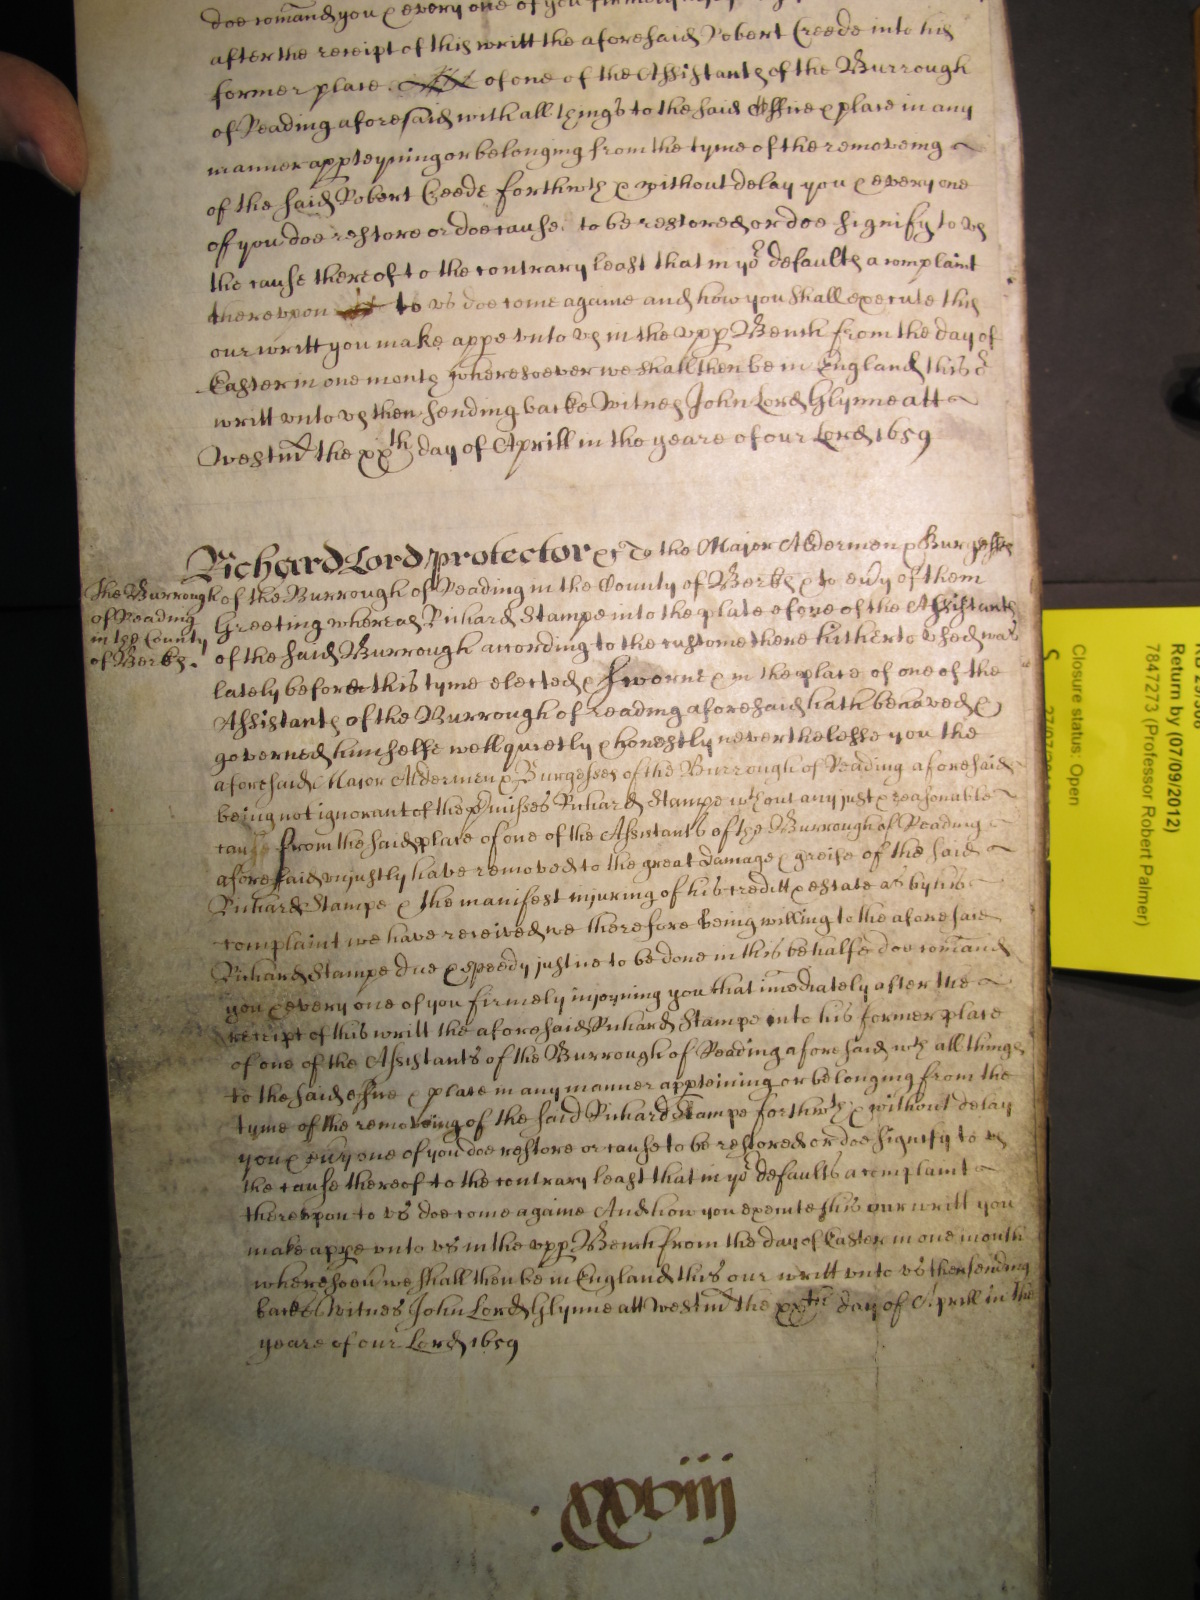 doe comand you & every one of you firmely
after the receipt of this writt the aforesaid Robert Creede into his
former place of one of the Assistants of the Burrough
of Reading aforesaid with all things to the said Office & place in any
manner appteyning or belonging from the tyme of the removeing
of the said Robert Creede forthwth & without delay you & every one
of you doe restore or doe cause to be restored or doe signify to vs
the cause thereof to the contrary least that in yor defaults a complaint
therevpon to vs doe come againe and how you shall execute this
our writt you make appe vnto vs in the vpp Bench from the day of
Easter in one month wheresoever we shall then be in England this or
writt vnto vs then sending backe Witnes John Lord Glynne att
Westm the xxth day of Aprill in the yeare of our Lord 1659
Richard Lord protector &c To the Major Aldermen & Burgesses
The Burrough
of Reading
in the County
of Berks.
of the Burrough of Reading in the County of Berks & to evy of them
Greeting whereas Richard Stampe into the place of one of the Assistants
of the said Burrough according to the custome there hitherto vsed was
lately before this tyme elected & sworne & in the place of one of the
Assistants of the Burrough of Reading aforesaid hath behaved &
governed himselfe well quietly & honestly neverthelesse you the
aforesaid Major Aldermen & Burgesses of the Burrough of Reading aforesaid
being not ignorant of the pmisses Richard Stampe wthout any just & reasonable
cause from the said place of one of the Assistants of the Burrough of Reading
aforesaid vnjustly have removed to the great damage & greife of the said
Richard Stampe & the manifest injuring of his creditt & estate as by his
complaint we have received we therefore being willing to the aforesaid
Richard Stampe due & speedy justice to be done in this behalfe doe comand
you & every one of you firmely injoyning you that imediately after the
receipt of this writt the aforesaid Richard Stampe into his former place
of one of the Assistants of the Burrough of Reading aforesaid wth all things
to the said office & place in any manner appteining or belonging from the
tyme of the removeing of the said Richard Stampe forthwth & without delay
you & evy one of you doe restore or cause to be restored or doe signify to vs
the cause thereof to the contrary least that in yor defaults a complaint
therevpon to vs doe come againe And how you execute this our writt you
make appe vnto vs in the vpp Bench from the day of Easter in one month
wheresoevr we shall then be in England this our writt vnto vs then sending
backe Witnes John Lord Glynne att Westm the xxth day of Aprill in the
yeare of our Lord 1659
Return by (07/09/2012)
7847273 (Professor Robert Palmer)
Closure status: Open